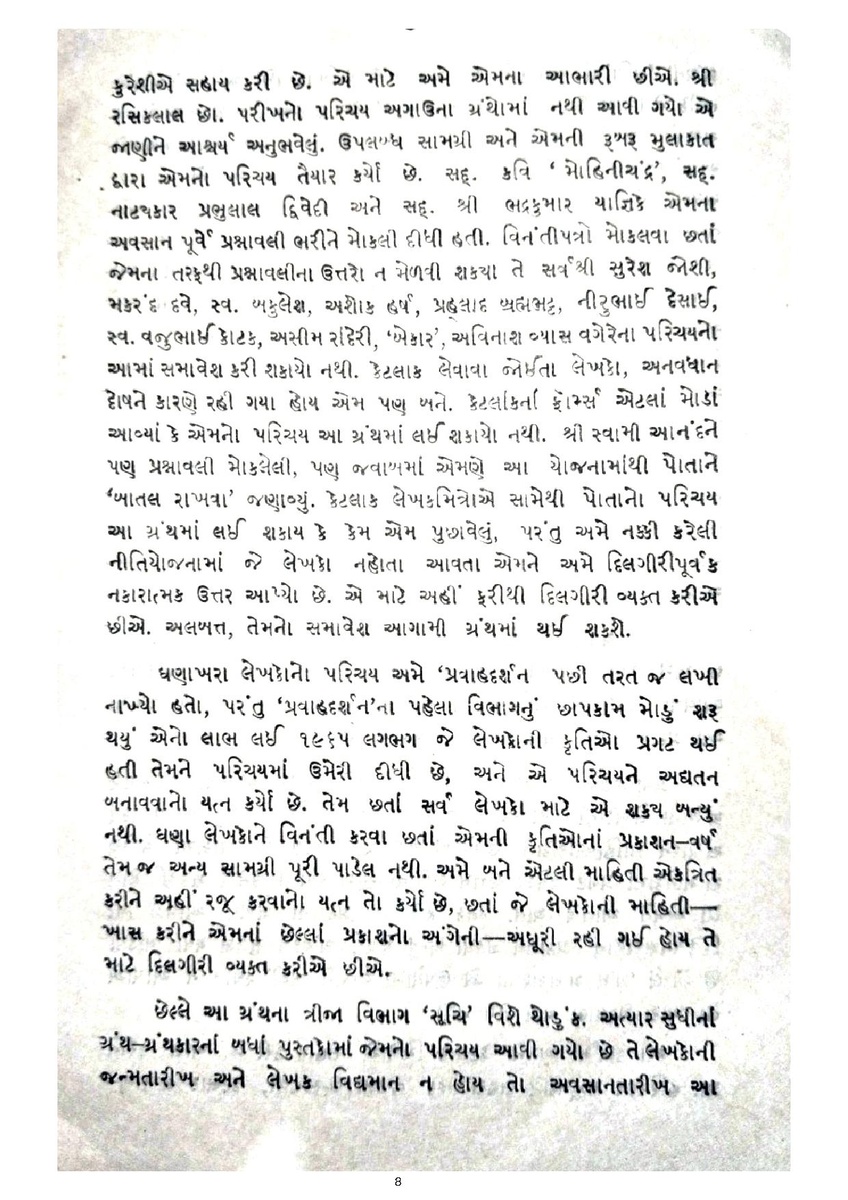 કુરેશીએ સહાય કરી છે. એ માટે અમે એમના આભારી છીએ. શ્રી
રસિકલાલ છો. પરીખનો પરિચય અગાઉના ગ્રંથોમાં નથી આવી ગયો એ
જાણીને આશ્ચર્ય અનુભવેલું. ઉપલબ્ધ સામગ્રી અને એમની રૂબરૂ મુલાકાત
દ્વારા એમનો પરિચય તૈયાર કર્યો છે. સદ્. કવિ ‘મોહિનીચંદ્ર’, સદ્.
નાટ્યકાર પ્રભુલાલ દ્વિવેદી અને સદ્. શ્રી ભદ્રકુમાર યાજ્ઞિકે એમના
અવસાન પૂર્વે પ્રશ્નાવલી ભરીને મોકલી દીધી હતી. વિનંતીપત્રો મોકલવા છતાં
જેમના તરફથી પ્રશ્નાવલીના ઉત્તરો ન મેળવી શકાયા તે સર્વશ્રી સુરેશ જોશી,
મકરંદ દવે, સ્વ. બકુલેશ, અશોક હર્ષ, પ્રહ્લાદ બ્રહ્મભટ્ટ, નીરુભાઈ દેસાઈ,
સ્વ. વજુભાઈ કોટક, અસીમ રાંદેરી, ‘બેકાર’, અવિનાશ વ્યાસ વગેરેના પરિચયનો
આમાં સમાવેશ કરી શકાયો નથી. કેટલાક લેવાવા જોઈતા લેખકો, અનવધાન
દોષને કારણે રહી ગયા હોય એમ પણ બને. કેટલાંકનાં ફૉર્મ્સ એટલાં મોડાં
આવ્યાં કે એમનો પરિચય આ ગ્રંથમાં લઈ શકાયો નથી. શ્રી સ્વામી આનંદને
પણ પ્રશ્નાવલી મોકલેલી, પણ જવાબમાં એમણે આ યોજનામાંથી પોતાને
‘બાતલ રાખવા’ જણાવ્યું. કેટલાક લેખકમિત્રોએ સામેથી પોતાનો પરિચય
આ ગ્રંથમાં લઈ શકાય કે કેમ એમ પુછાવેલું, પરંતુ અમે નક્કી કરેલી
નીતિયોજનામાં જે લેખકો નહોતા આવતા એમને અમે દિલગીરીપૂર્વક
નકારાત્મક ઉત્તર આપ્યો છે. એ માટે અહીં ફરીથી દિલગીરી વ્યક્ત કરીએ
છીએ. અલબત્ત, તેમનો સમાવેશ આગામી ગ્રંથમાં થઈ શકશે.
ઘણાખરા લેખકોનો પરિચય અમે ‘પ્રવાહદર્શન પછી તરત જ લખી
નાખ્યો હતો, પરંતુ ‘પ્રવાહદર્શન’ના પહેલા વિભાગનું છાપકામ મોડું શરૂ
થયું એનો લાભ લઈ ૧૯૬૫ લગભગ જે લેખકોની કૃતિઓ પ્રગટ થઈ
હતી તેમને પરિચયમાં ઉમેરી દીધી છે, અને એ પરિચયને અદ્યતન
બનાવવાનો યત્ન કર્યો છે. તેમ છતાં સર્વ લેખકો માટે એ શક્ય બન્યું
નથી. ઘણા લેખકોને વિનંતી કરવા છતાં એમની કૃતિઓનાં પ્રકાશન–વર્ષ
તેમ જ અન્ય સામગ્રી પૂરી પાડેલ નથી. અમે બને એટલી માહિતી એકત્રિત
કરીને અહીં રજૂ કરવાનો યત્ન તો કર્યો છે, છતાં જે લેખકોની માહિતી—
ખાસ કરીને એમનાં છેલ્લાં પ્રકાશનો અંગેની—અધૂરી રહી ગઈ હોય તે
માટે દિલગીરી વ્યક્ત કરીએ છીએ.
છેલ્લે આ ગ્રંથના ત્રીજા વિભાગ ‘સૂચિ’ વિશે થોડુંક. અત્યાર સુધીનાં
ગ્રંથ–ગ્રંથકારનાં બધાં પુસ્તકોમાં જેમનો પરિચય આવી ગયો છે તે લેખકોની
જન્મતારીખ અને લેખક વિદ્યમાન ન હોય તો અવસાનતારીખ આ
8